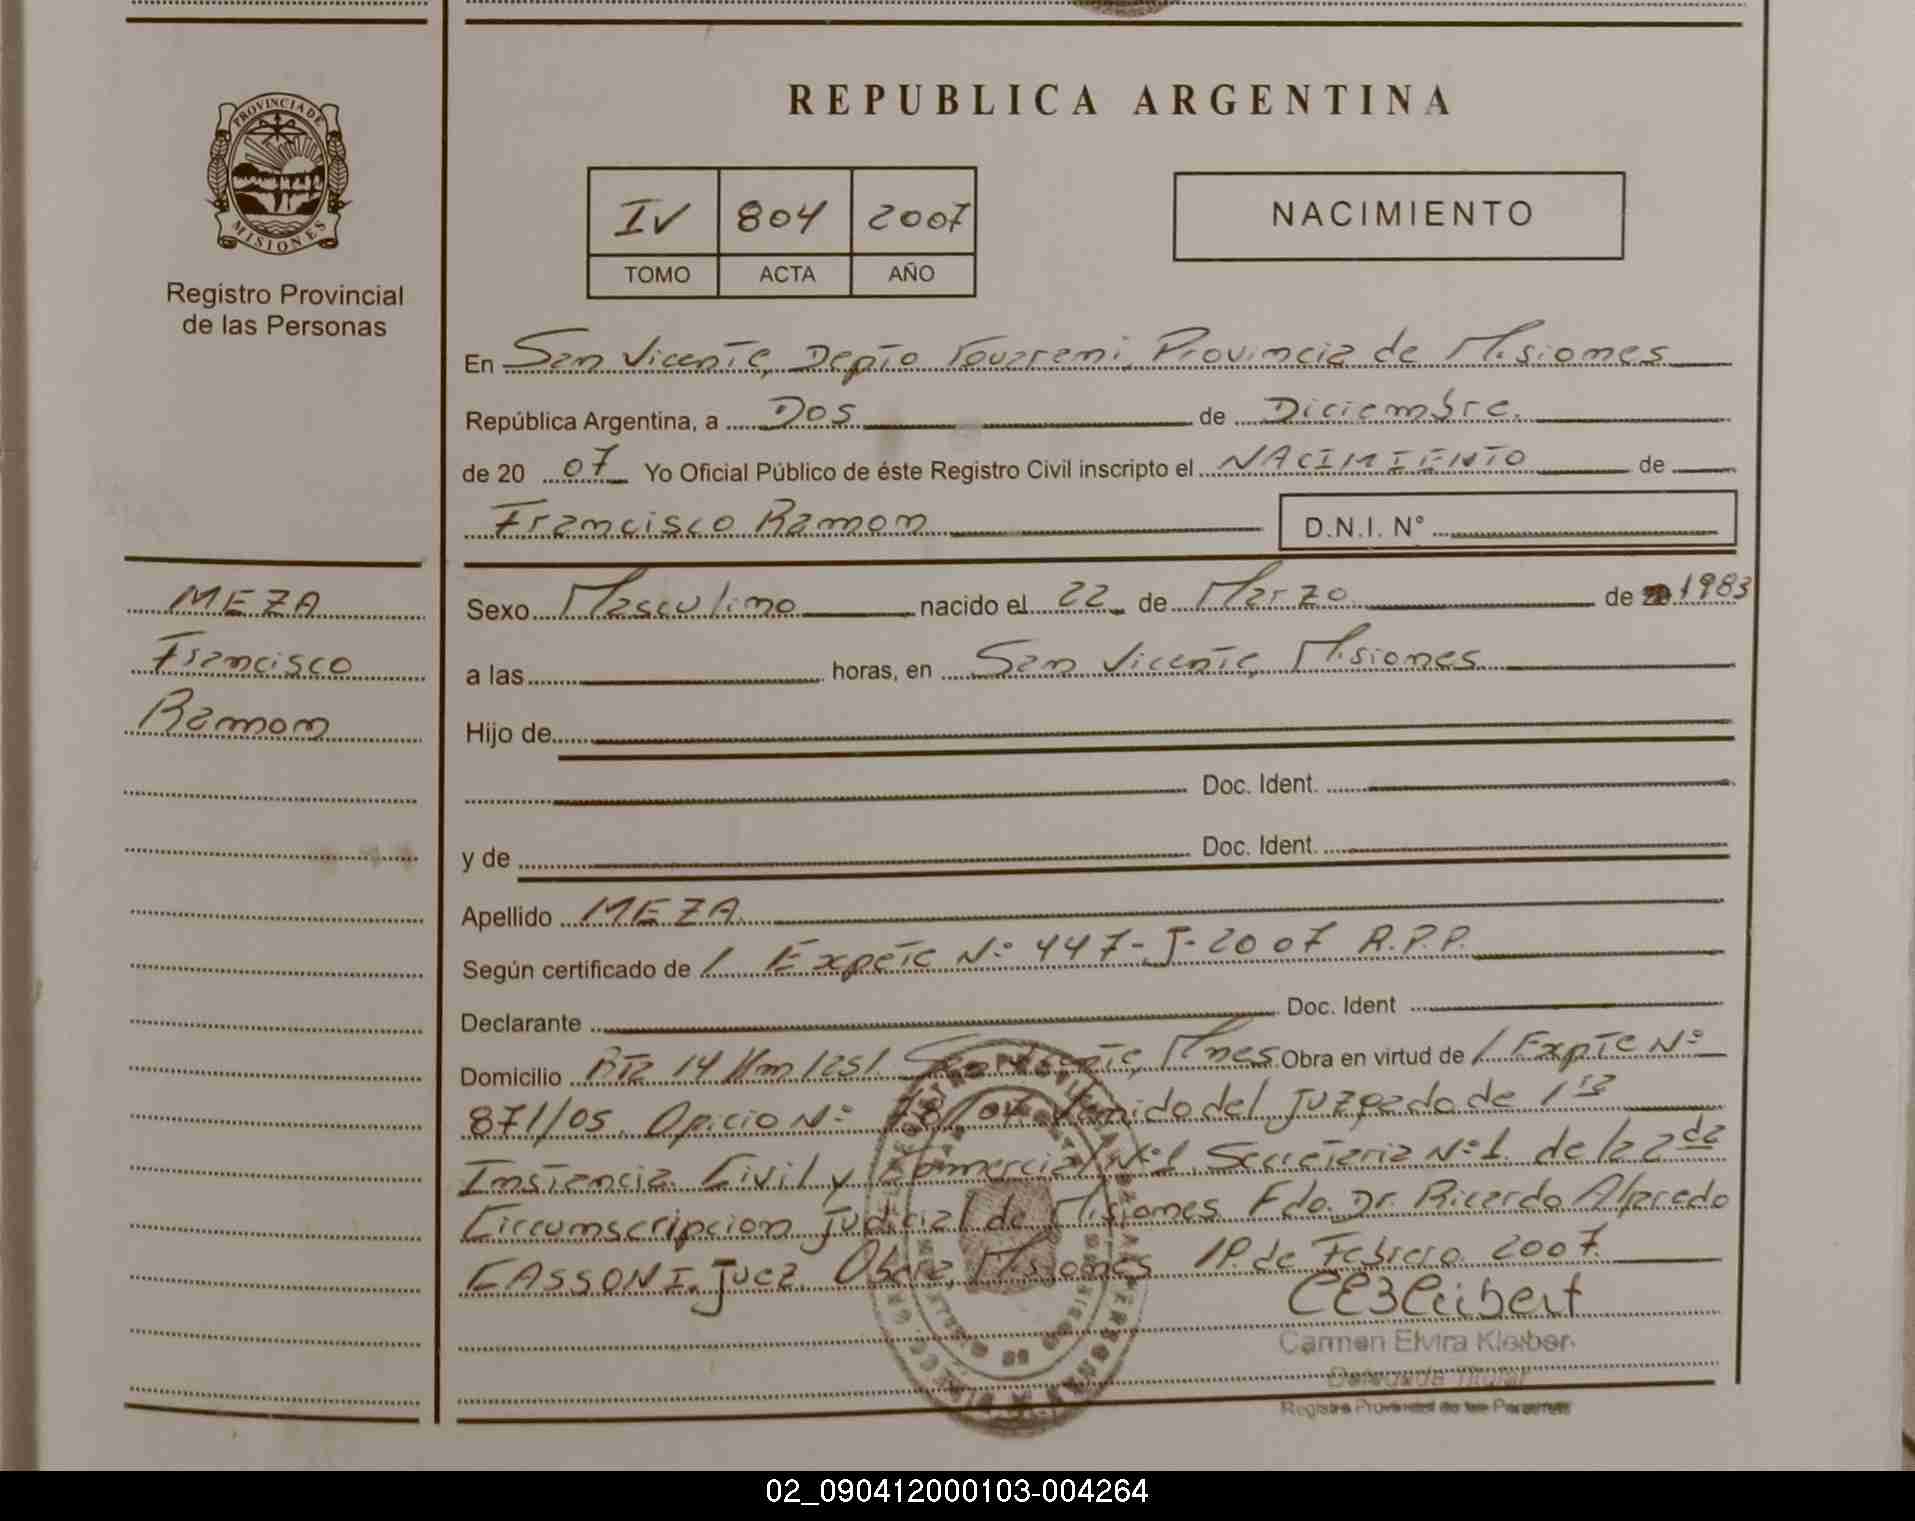 REPUBLICA ARGENTINA
PROVINCIA DE
MISIONES
Registro Provincial
de las Personas
IV 804 2007
TOMO ACTA AÑO
NACIMIENTO
En San Vicente, Depto Guarani, Provincia de Misiones
República Argentina, a Dos de Diciembre.
de 20 07 Yo Oficial Público de éste Registro Civil inscripto el NACIMIENTO de
Francisco Ramon D.N.I. N°
MEZA
Francisco
Ramon
Sexo Masculino nacido el 22 de Marzo de 1983
a las horas, en San Vicente, Misiones
Hijo de
Doc. Ident.
y de Doc. Ident.
Apellido MEZA
Según certificado de / Expete N° 447-J-2007 R.P.P.
Declarante Doc. Ident
Domicilio Rta 14 Km 1251 San Vicente, Mnes Obra en virtud de / Expte N°
871/05. Oficio N° 78/07 Venido del Juzgado de 1ra
Instancia Civil y Comercial N°1 Secretaria N°1 de la 2da
Circumscripcion Judicial de Misiones Fdo. Dr. Ricardo Alfredo
CASSONI. Juez. Obera, Misiones de Febrero 2007.
Carmen Elvira Kleiber
Delegada Titular
Registro Provincial de las Personas
02_090412000103-004264